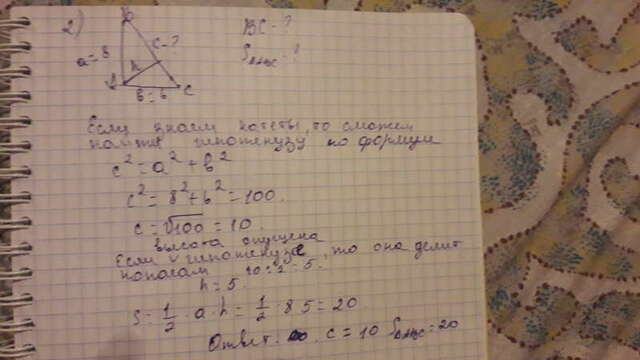 2)
a = 8
h
c - ?
b = 6
C
BC - ?
S
Если знаем катеты, то сможем
найти гипотенузу по формуле
c² = a² + b²
c² = 8² + 6² = 100.
c = √100 = 10.
Если высота опущена
к гипотенузе, то она делит
пополам 10:2 = 5.
h = 5
S = 1/2 · a · h = 1/2 · 8 · 5 = 20
Ответ: c = 10 = 20